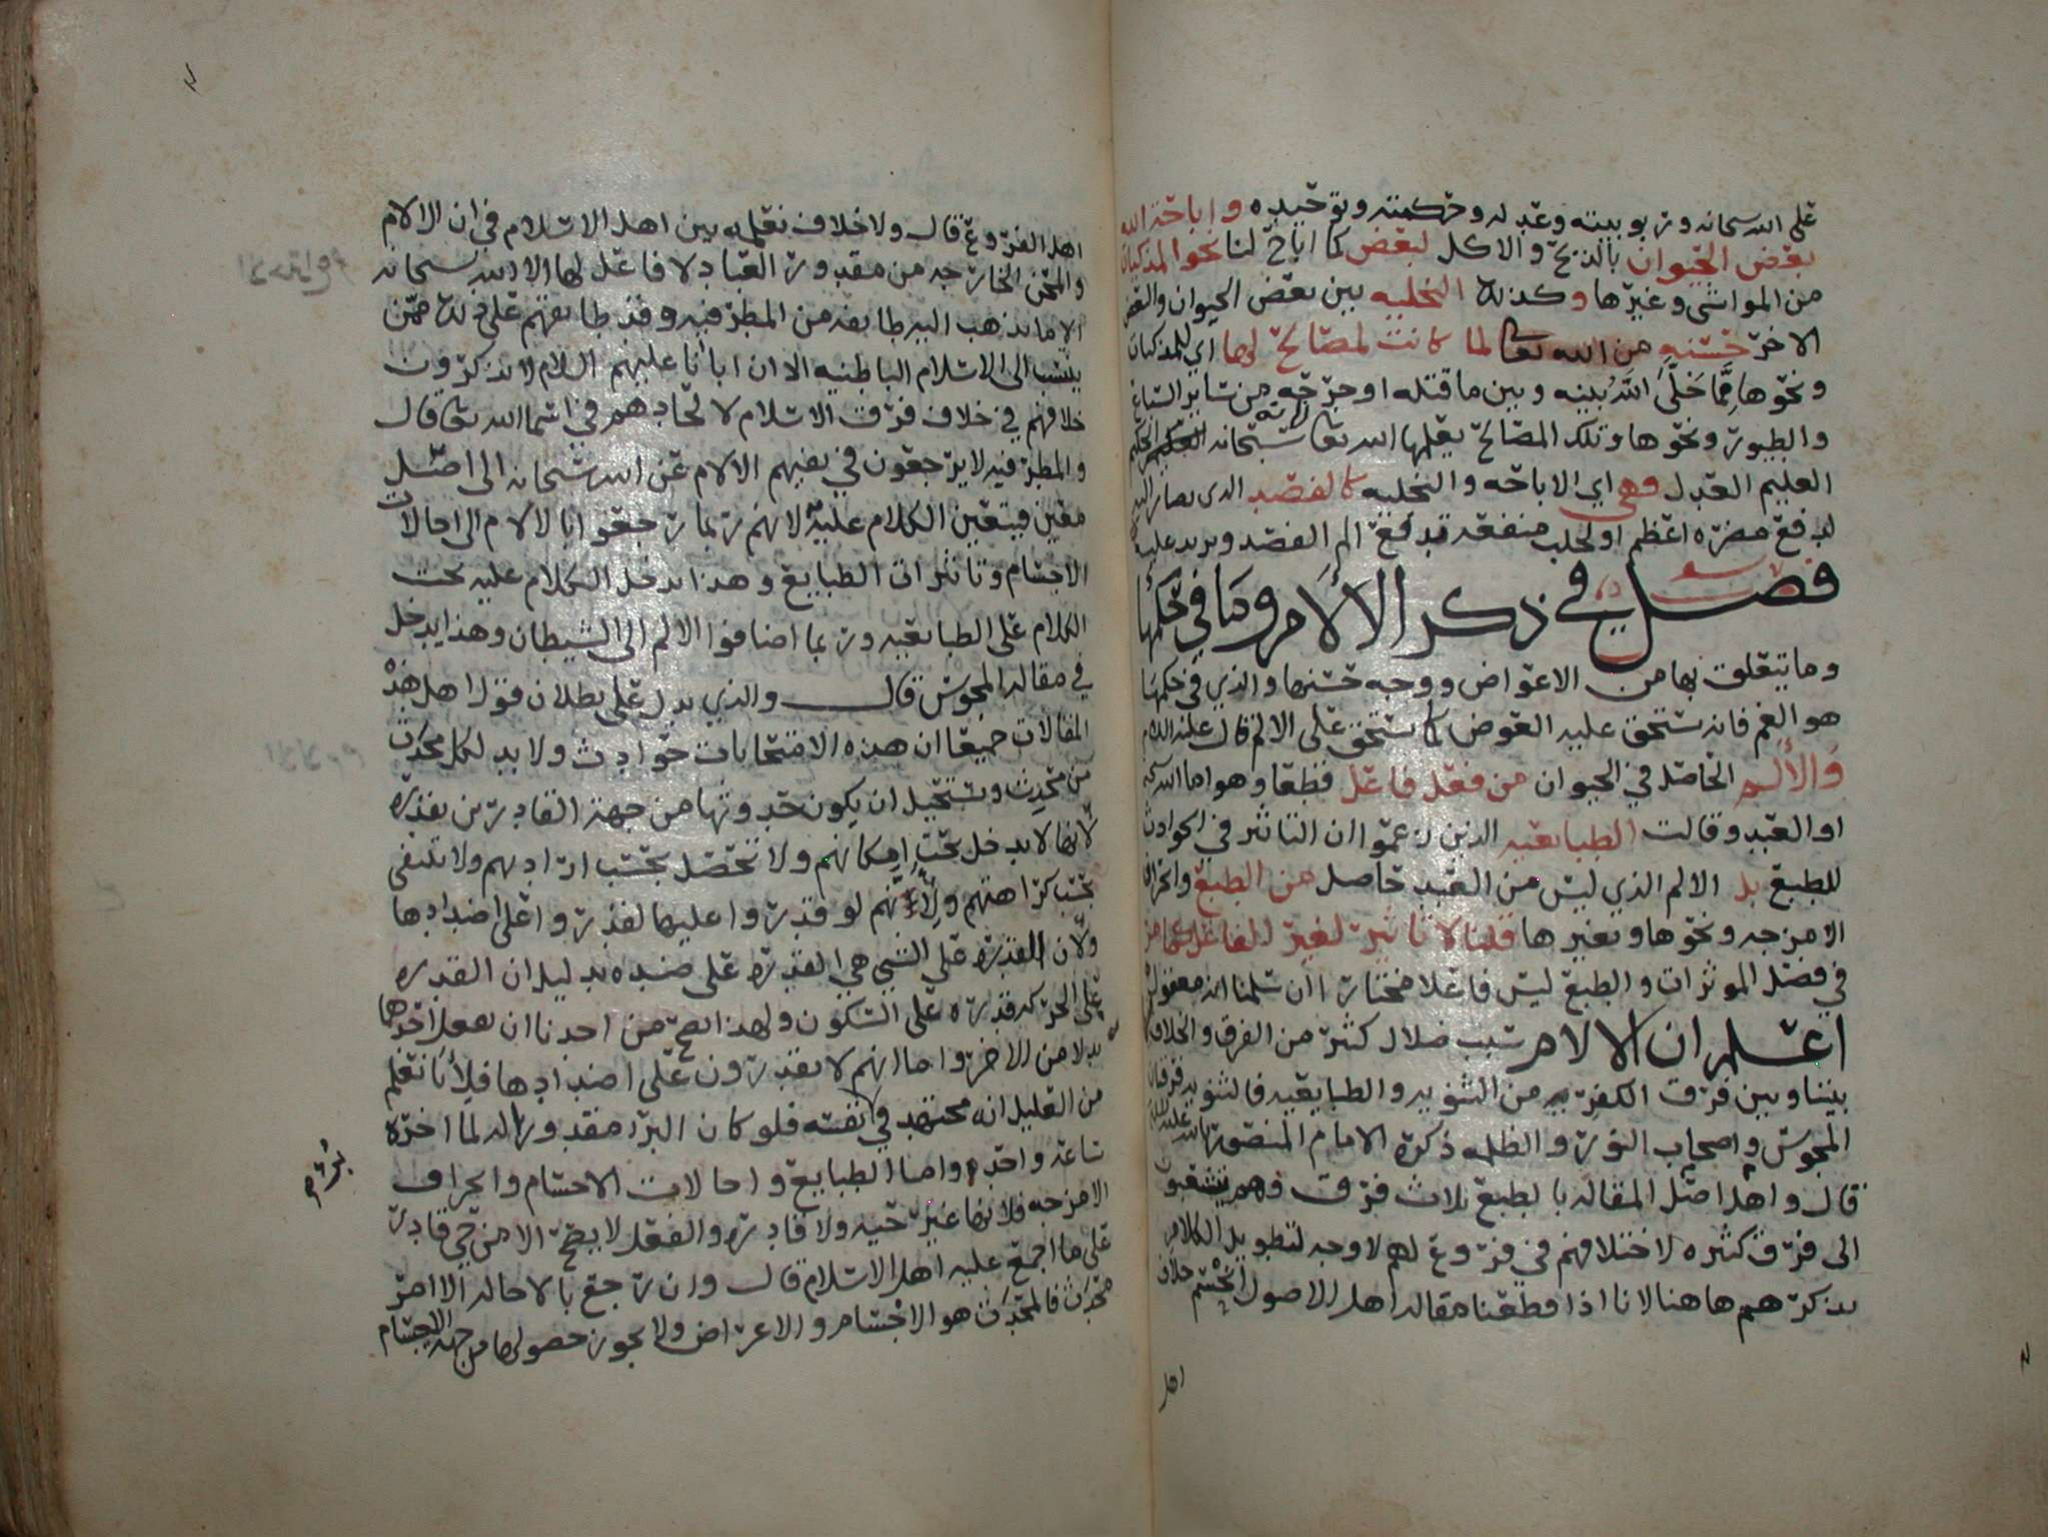 على الله سبحانه وربوبيته وعدله وحكمته وتوحيده وإباحة الله
بعض الحيوان بالذبح والاكل لبعض كما اباح لنا نحو المذكيات
من المواشي وغيرها وكذلك التخليه بين بعض الحيوان والبعض
الاخر حسنه من الله تعالى لما كانت لمصالح لها اي للمذكيات
ونحوها مما خلى الله بينه وبين ما قتله او جرحه من سائر السباع
والطيور ونحوها وتلك المصالح يعلمها الله تعالى سبحانه لانه الحكيم
العليم العدل فهي اي الاباحه والتخليه كالفصد الذي يصار اليه
لدفع مضره اعظم او لجلب منفعه تدفع الم الفصد ويزيد عليه
فصل في ذكر الآلام وما في حكمها
وما يتعلق بها من الاعواض ووجه حسنها والذي في حكمها
هو الغم فانه يستحق عليه العوض كما يستحق على الالم قال عليه السلام
والألم الحاصل في الحيوان من فعل فاعل قطعا وهو اما الله تعالى
او العبد وقالت الطبايعيه الذين زعموا ان التاثير في الحوادث
للطبع بل الالم الذي ليس من العبد حاصل من الطبع وانحراف
الامزجه ونحوها وتغيرها قلنا لا تاثير لغير الفاعل كما مر
في فصل الموثرات والطبع ليس فاعلا مختارا ان سلمنا انه معقول
اعلم ان الالام سبب ضلال كثير من الفرق والخلاف
بيننا وبين فرق الكفريه من الثنويه والطبايعيه فالثنويه فرقتان
المجوس واصحاب النور والظلمه ذكره الامام المنصور بالله عليه السلام
قال واهل اصل المقاله بالطبع ثلاث فرق فهم يتشعبون
الى فرق كثيره لاختلافهم في فروع لهم لا وجه لتطويل الكلام
بذكرهم هاهنا لانا اذا قطعنا مقاله اهل الاصول انحسم خلاف
اهل
اهل الفروع قال ولا خلاف نعلمه بين اهل الاسلام في ان الالام
والمحن الخارجه من مقدور العباد لا فاعل لها الا الله سبحانه
الا ما يذهب اليه طايفه من المطرفيه وقد طابقهم على ذلك ممن
ينتسب الى الاسلام الباطنيه الا ان ابانا عليهم السلام لا يذكرون
خلافهم في خلاف فرق الاسلام لالحادهم في اسما الله تعالى قال
والمطرفيه لا يرجعون في نفيهم الالام عن الله سبحانه الى اصل
معين فيتعين الكلام عليه لانهم ربما رجعوا بالالام الى احالات
الاجسام وتاثيرات الطبايع وهذا يدخل الكلام عليه تحت
الكلام على الطبايعيه وربما اضافوا الالم الى الشيطان وهذا يدخل
في مقاله المجوس قال والذي يدل على بطلان قول اهل هذه
المقالات جميعا ان هذه الامتحانات حوادث ولا بد لكل محدث
من محدث ويستحيل ان يكون حدوثها من جهة القادرين بقدره
لانها لا يدخل تحت امكانهم ولا تحصل بحسب ارادتهم ولا تنتفي
بحسب كراهتهم ولانهم لو قدروا عليها لقدروا على اضدادها
ولان القدره على الشي هي القدره على ضده بدليل ان القدره
على الحركه قدره على السكون ولهذا يصح من احدنا ان يفعل احدهما
بدلا من الاخر واما انهم لا يقدرون على اضدادها فلأنا نعلم
من العليل انه مجتهد في نفسه فلو كان البرء مقدورا له لما اخره
ساعه واحده واما الطبايع واحالات الاجسام وانحراف
الامزجه فلانها غير حيه ولا قادره والفعل لا يصح الا من حي قادر
على ما اجمع عليه اهل الاسلام قال وان رجع بالاحاله الا امر
محدث فالمحدث هو الاجسام والاعراض ولا يجوز حصولها من جهه الاجسام